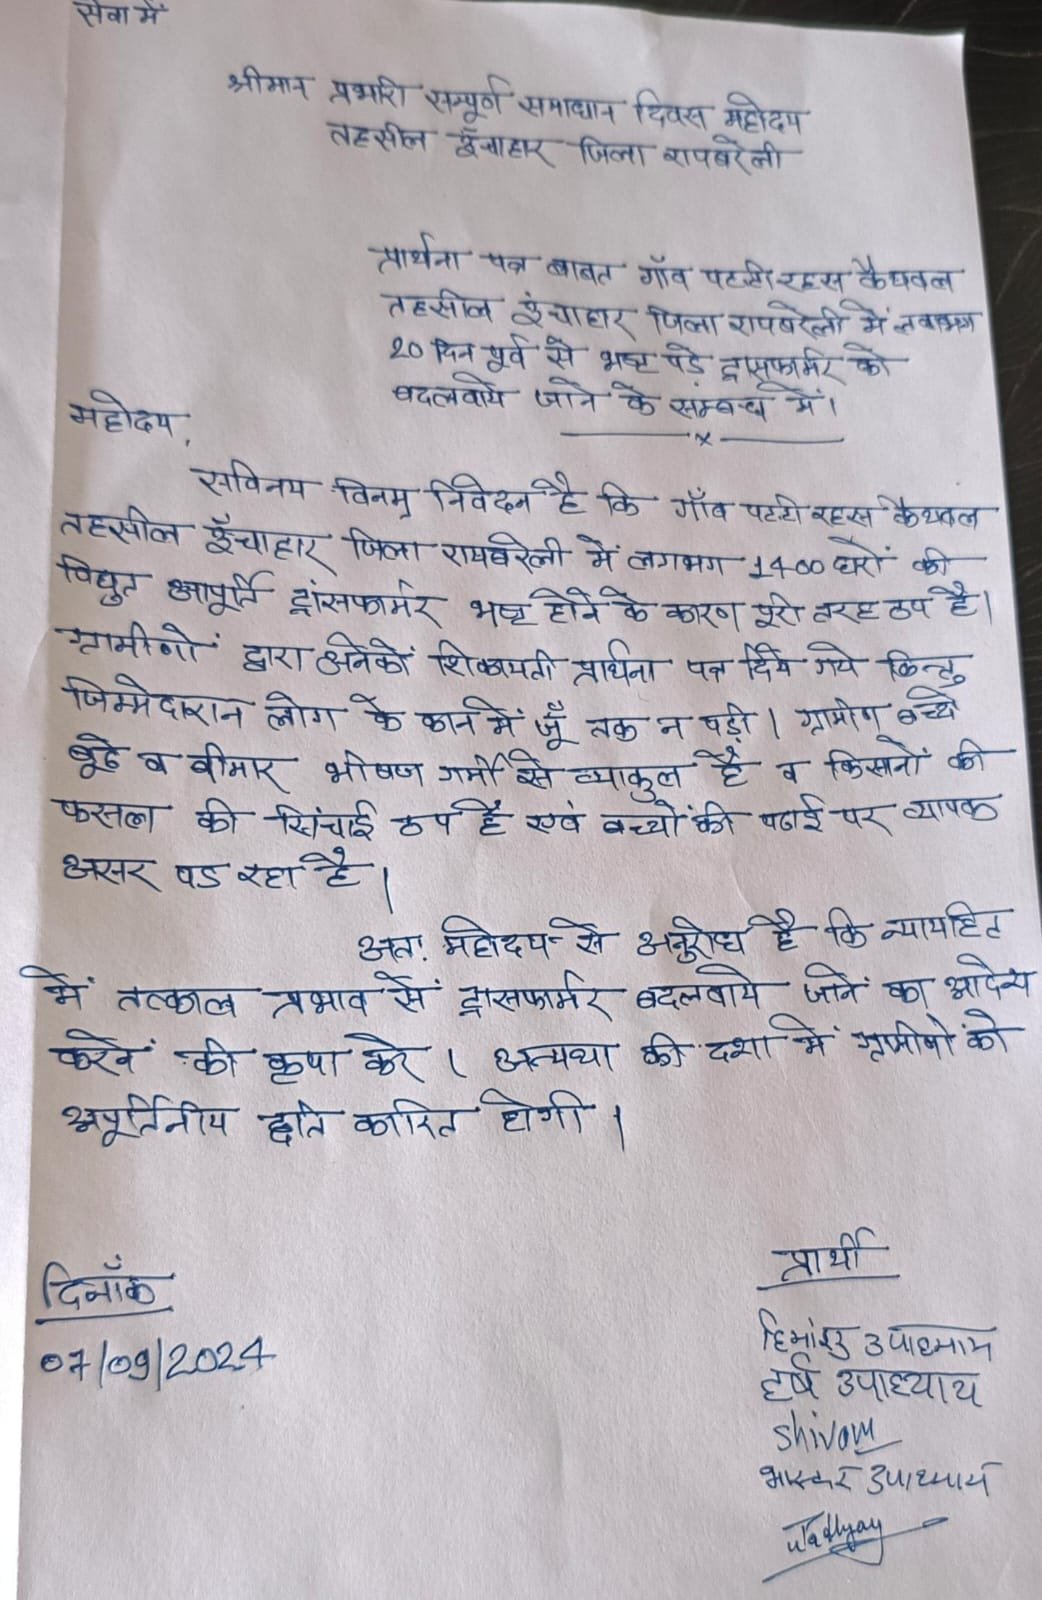 सेवा में
श्रीमान प्रभारी सम्पूर्ण समाधान दिवस महोदय
तहसील ऊँचाहार जिला रायबरेली
प्रार्थना पत्र बाबत गाँव पटटी रहस कैथवल
तहसील ऊंचाहार जिला रायबरेली में लगभग
20 दिन पूर्व से भ्रष्ट पड़े ट्रांसफार्मर को
बदलवाये जाने के सम्बन्ध में।
महोदय,
सविनय विनम्र निवेदन है कि गाँव पटटी रहस कैथवल
तहसील ऊँचाहार जिला रायबरेली में लगभग 1400 घरों की
विद्युत आपूर्ति ट्रांसफार्मर भ्रष्ट होने के कारण पूरी तरह ठप है।
ग्रामीणों द्वारा अनेकों शिकायती प्रार्थना पत्र दिये गये किन्तु
जिम्मेदारान लोग के कान में जूँ तक न पड़ी। ग्रामीण बच्चे
बूढे व बीमार भीषण गर्मी से व्याकुल है व किसानों की
फसल की सिंचाई ठप है एवं बच्चों की पढाई पर व्यापक
असर पड रहा है।
अतः महोदय से अनुरोध है कि न्यायहित
में तत्काल प्रभाव से ट्रांसफार्मर बदलवाये जाने का आदेश
करने की कृपा करे। अन्यथा की दशा में ग्रामीणों को
अपूर्तिनीय क्षति कारित होगी।
प्रार्थी
दिनाँक
07/09/2024
हिमांशु उपाध्याय
हर्ष उपाध्याय
Shivam
भास्कर उपाध्याय